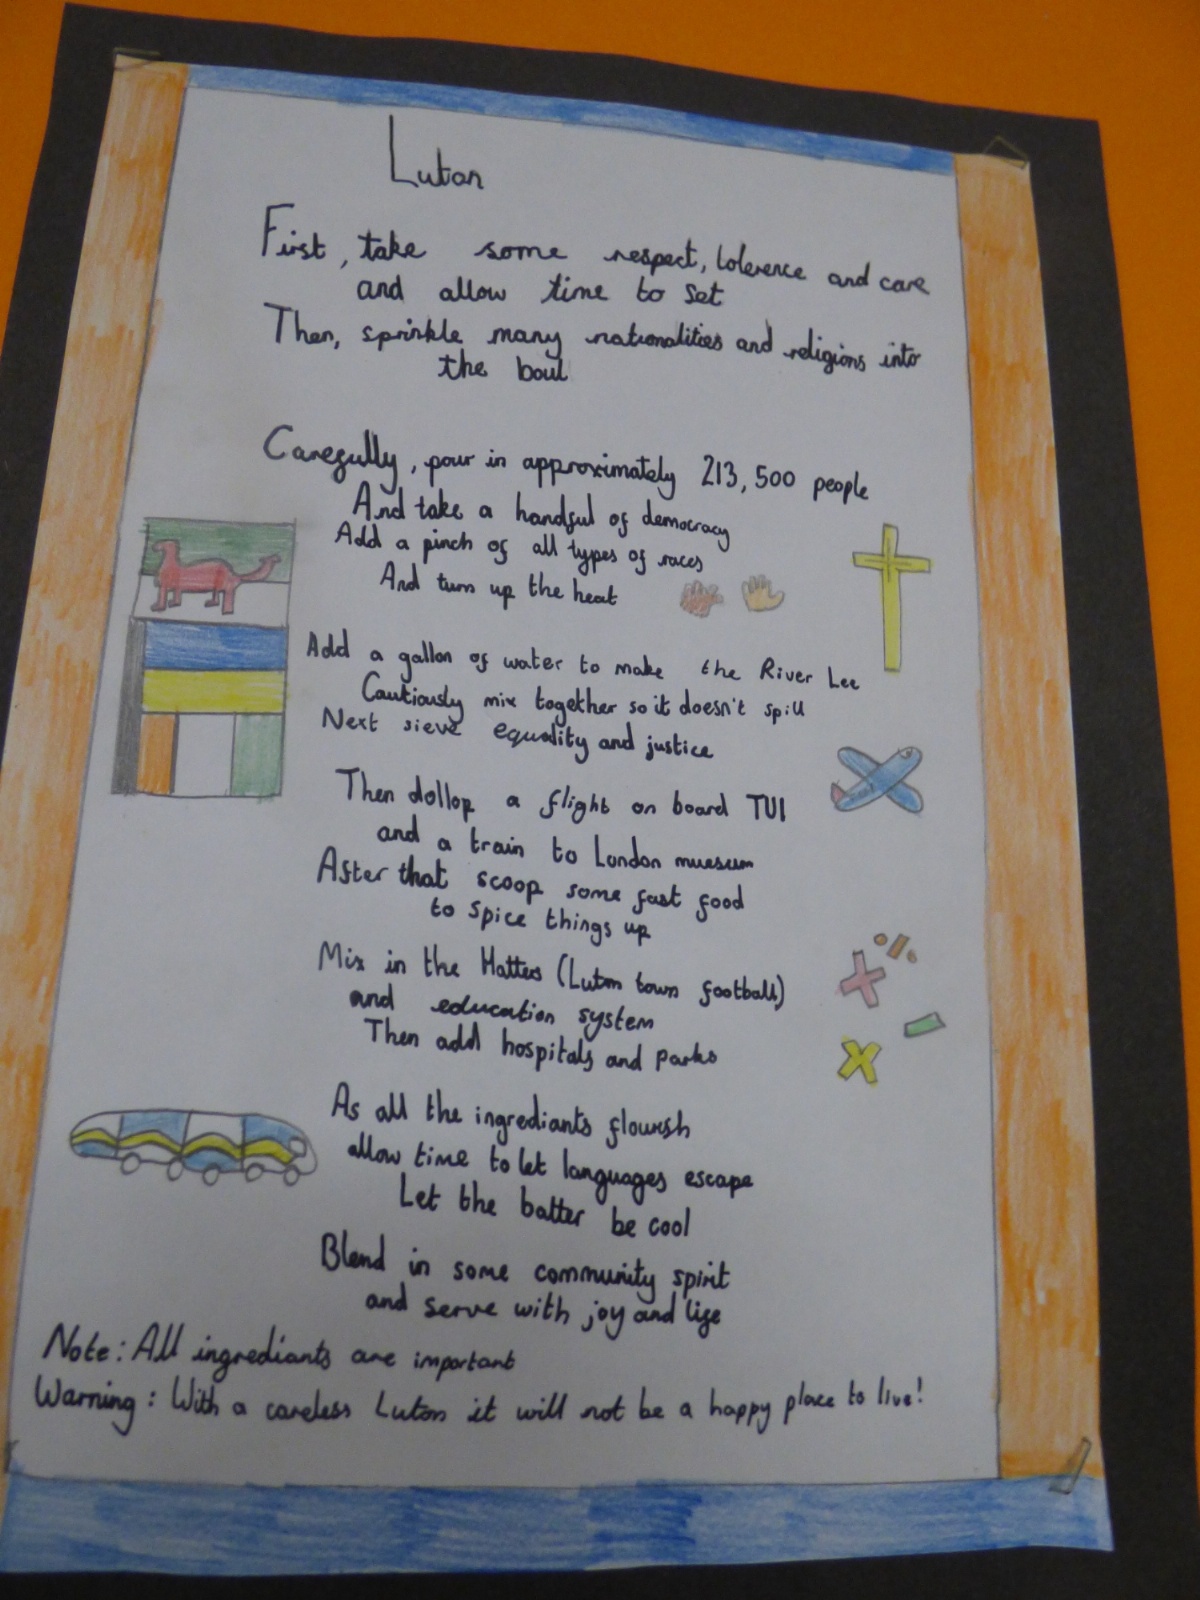 Luton
First, take some respect, tolerence and care
and allow time to set
Then, sprinkle many nationalities and religions into
the boul
Carefully, pour in approximately 213,500 people
And take a handful of democracy
Add a pinch of all types of races
And turn up the heat
Add a gallon of water to make the River Lee
Cautiously mix together so it doesn't spill
Next sieve equality and justice
Then dollop a flight on board TUI
and a train to London
After that scoop some fast food
to spice things up
Mix in the Hatters (Luton town football)
and education system
Then add hospitals and parks
As all the ingrediants flourish
allow time to let languages escape
Let the batter be cool
Blend in some community spirit
and serve with joy and life
Note: All ingrediants are important
Warning: With a careless Luton it will not be a happy place to live!